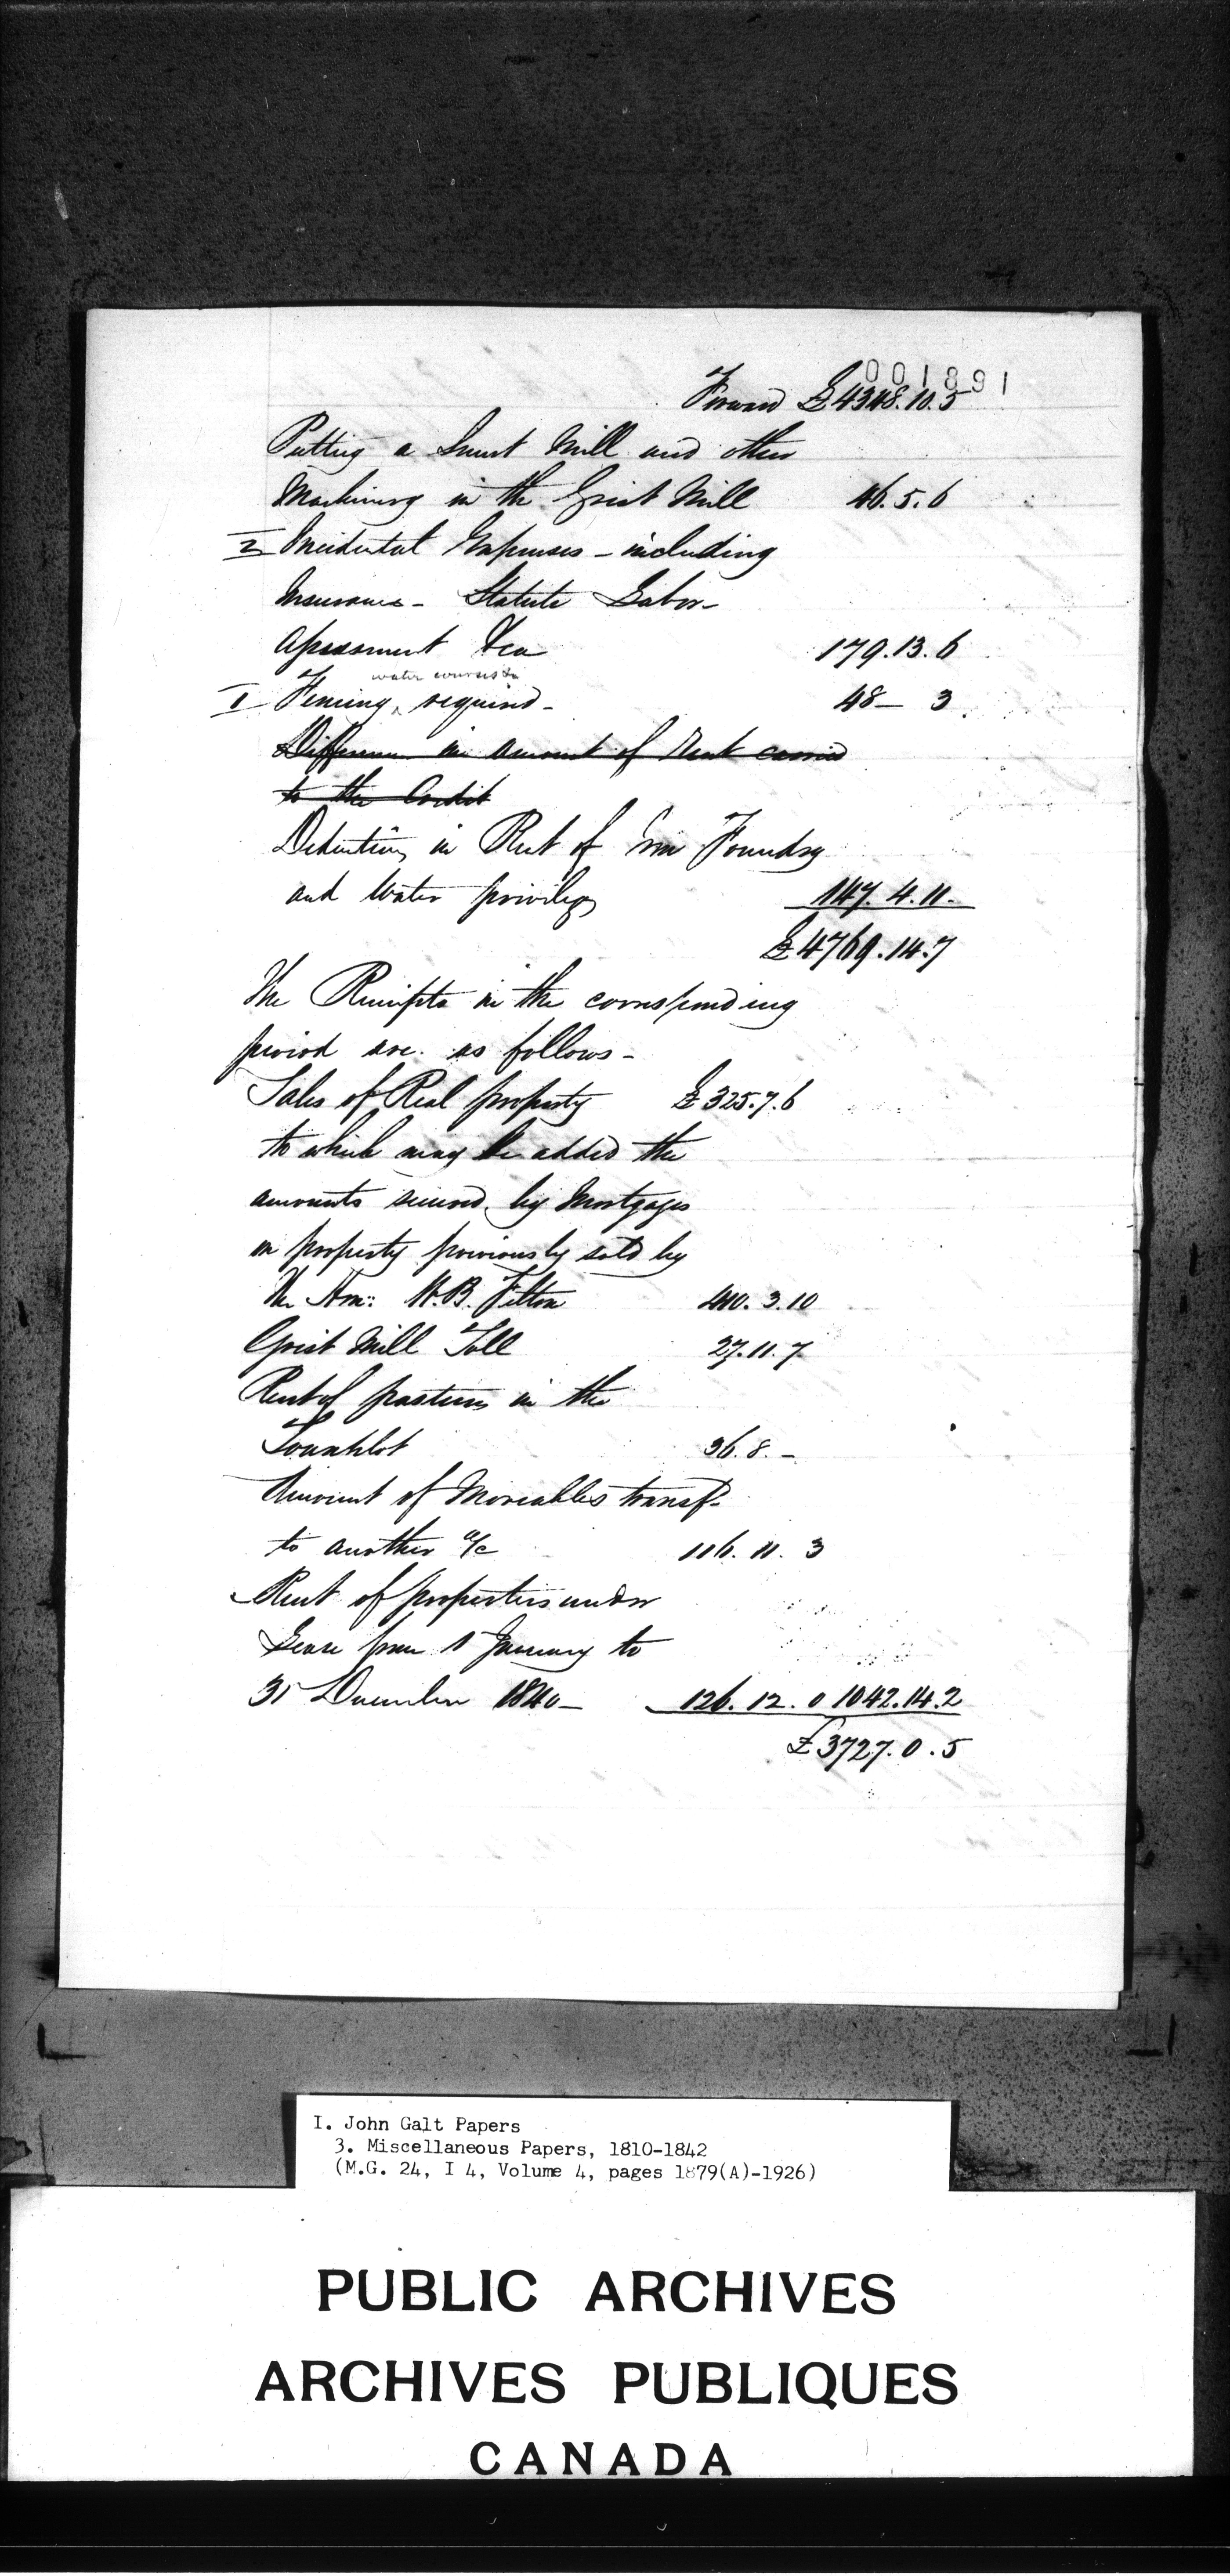 001891
Forward £4348.10.5
Putting a Smut Mill and other
Machinery in the Grist Mill 46.5.6
2 Incidental Expenses - including
Insurance - Statute Labor -
Assessment &ca 179.13.6
water courses &c
1 Fencing ^ required - 48 - 3
Difference in amount of Rent carried
to the Credit
Deduction in Rent of Iron Foundry
and Water privilege 147.4.11.
£4769.14.7
The Receipts in the corresponding
period are. as follows -
Sales of Real property £325.7.6
to which may be added the
amounts secured by Mortgages
on property previously sold by
The Hon: W.B. Felton 410.3.10
Grist Mill Toll 27.11.7
Rent of pastures in the
Townplot 36.8.-
Amount of Moveables transf-
to another a/c 116.11.3
Rent of properties under
Lease from 1 January to
31 December 1840 - 126.12.0 1042.14.2
£3727.0.5
I. John Galt Papers
3. Miscellaneous Papers, 1810-1842
(M.G. 24, I 4, Volume 4, pages 1879(A)-1926)
PUBLIC ARCHIVES
ARCHIVES PUBLIQUES
CANADA